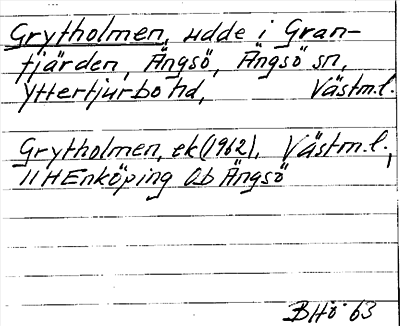 Grytholmen, udde i Gran-
fjärden, Ängsö, Ängsö sn,
Yttertjurbo hd, Västm.l.
Grytholmen, ek (1962), Västm.l.,
11H Enköping 0b Ängsö
BHö 63